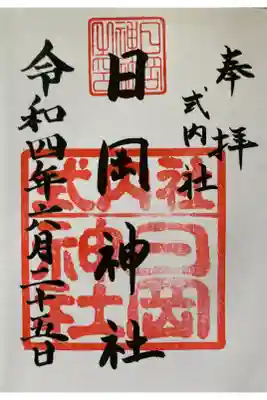 奉拝
式内社
日岡神社
令和四年六月二十五日
式内社
日岡
神社